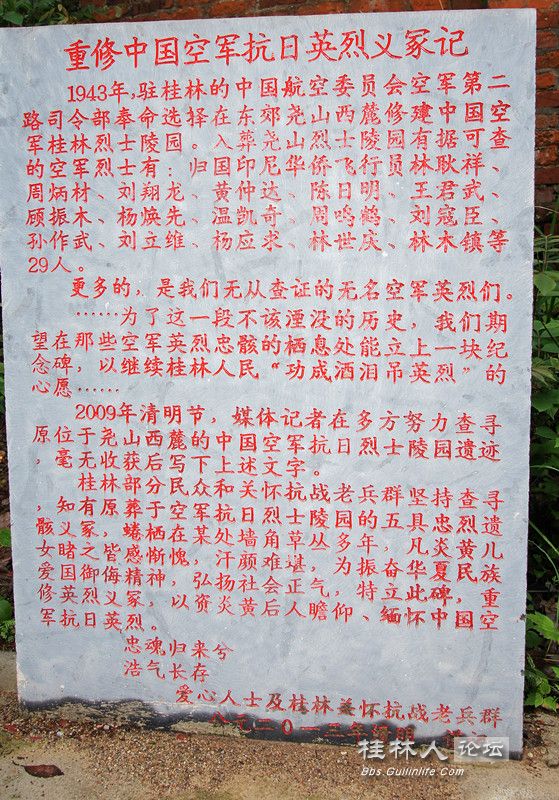 重修中国空军抗日英烈义冢记
1943年，驻桂林的中国航空委员会空军第二
路司令部奉命选择在东郊尧山西麓修建中国空
军桂林烈士陵园。入葬尧山烈士陵园有据可查
的空军烈士有：归国印尼华侨飞行员林耿祥、
周炳材、刘翔龙、黄仲达、陈日明、王君武、
顾振木、杨焕先、温凯奇、周鸣鹤、刘寇臣、
孙作武、刘立维、杨应求、林世庆、林木镇等
29人。
更多的，是我们无从查证的无名空军英烈们。
……为了这一段不该湮没的历史，我们期
望在那些空军英烈忠骸的栖息处能立上一块纪
念碑，以继续桂林人民“功成洒泪吊英烈”的
心愿……
2009年清明节，媒体记者在多方努力查寻
原位于尧山西麓的中国空军抗日烈士陵园遗迹
，毫无收获后写下上述文字。
桂林部分民众和关怀抗战老兵群坚持查寻
，知有原葬于空军抗日烈士陵园的五具忠烈遗
骸义冢，蜷栖在某处墙角草丛多年，凡炎黄儿
女睹之皆感惭愧，汗颜难堪，为奋华夏民族
爱国御侮精神，弘扬社会正气，特立此碑，重
修英烈义冢，以资炎黄后人瞻仰、缅怀中国空
军抗日英烈。
忠魂归来兮
浩气长存
爱心人士及桂林关怀抗战老兵群
二〇一三年清明
桂林人论坛
Bbs.Guilinlife.Com